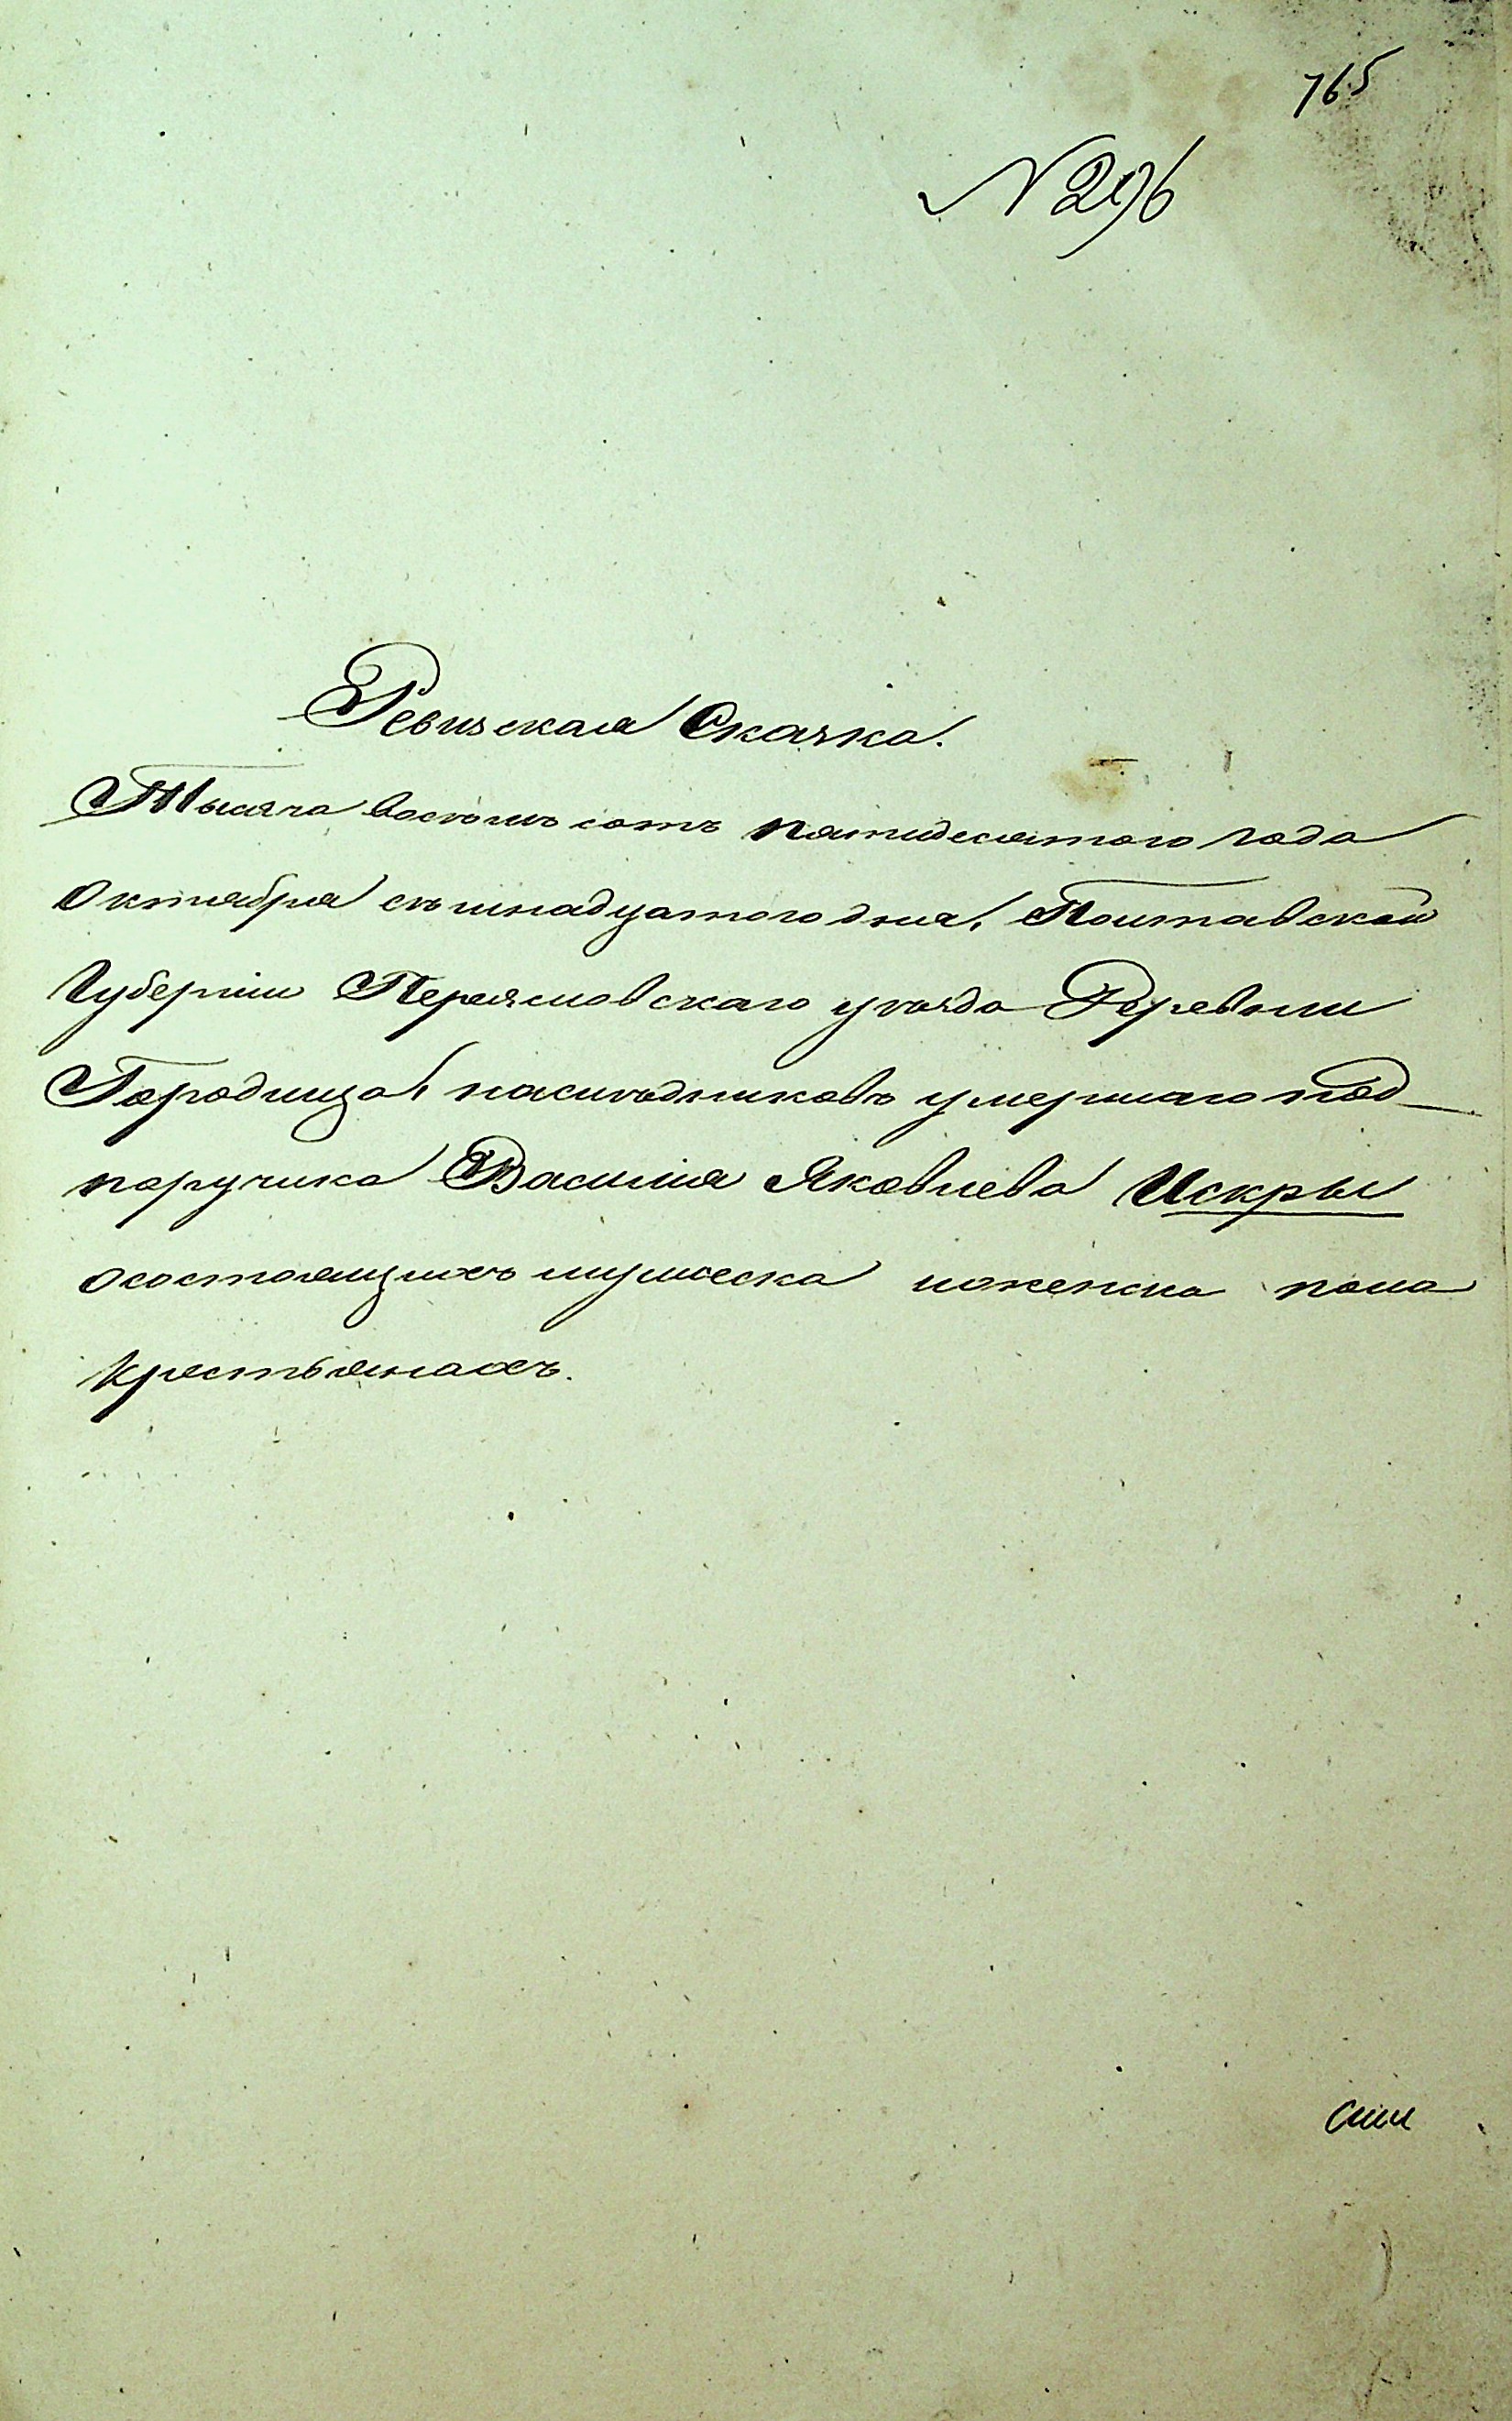 765
N 296
Ревизская Сказка.
Тысяча восѣмъ сотъ пятидесятого года
Октября сѣмнадцатого дня, Полтавской
Губерніи Переяславскаго уѣзда Деревни
Городища, наслѣдниковъ умершаго под-
поручика Василия Яковлева Искры
осостоящихъ мужеска иженска пола
крестьянахъ.